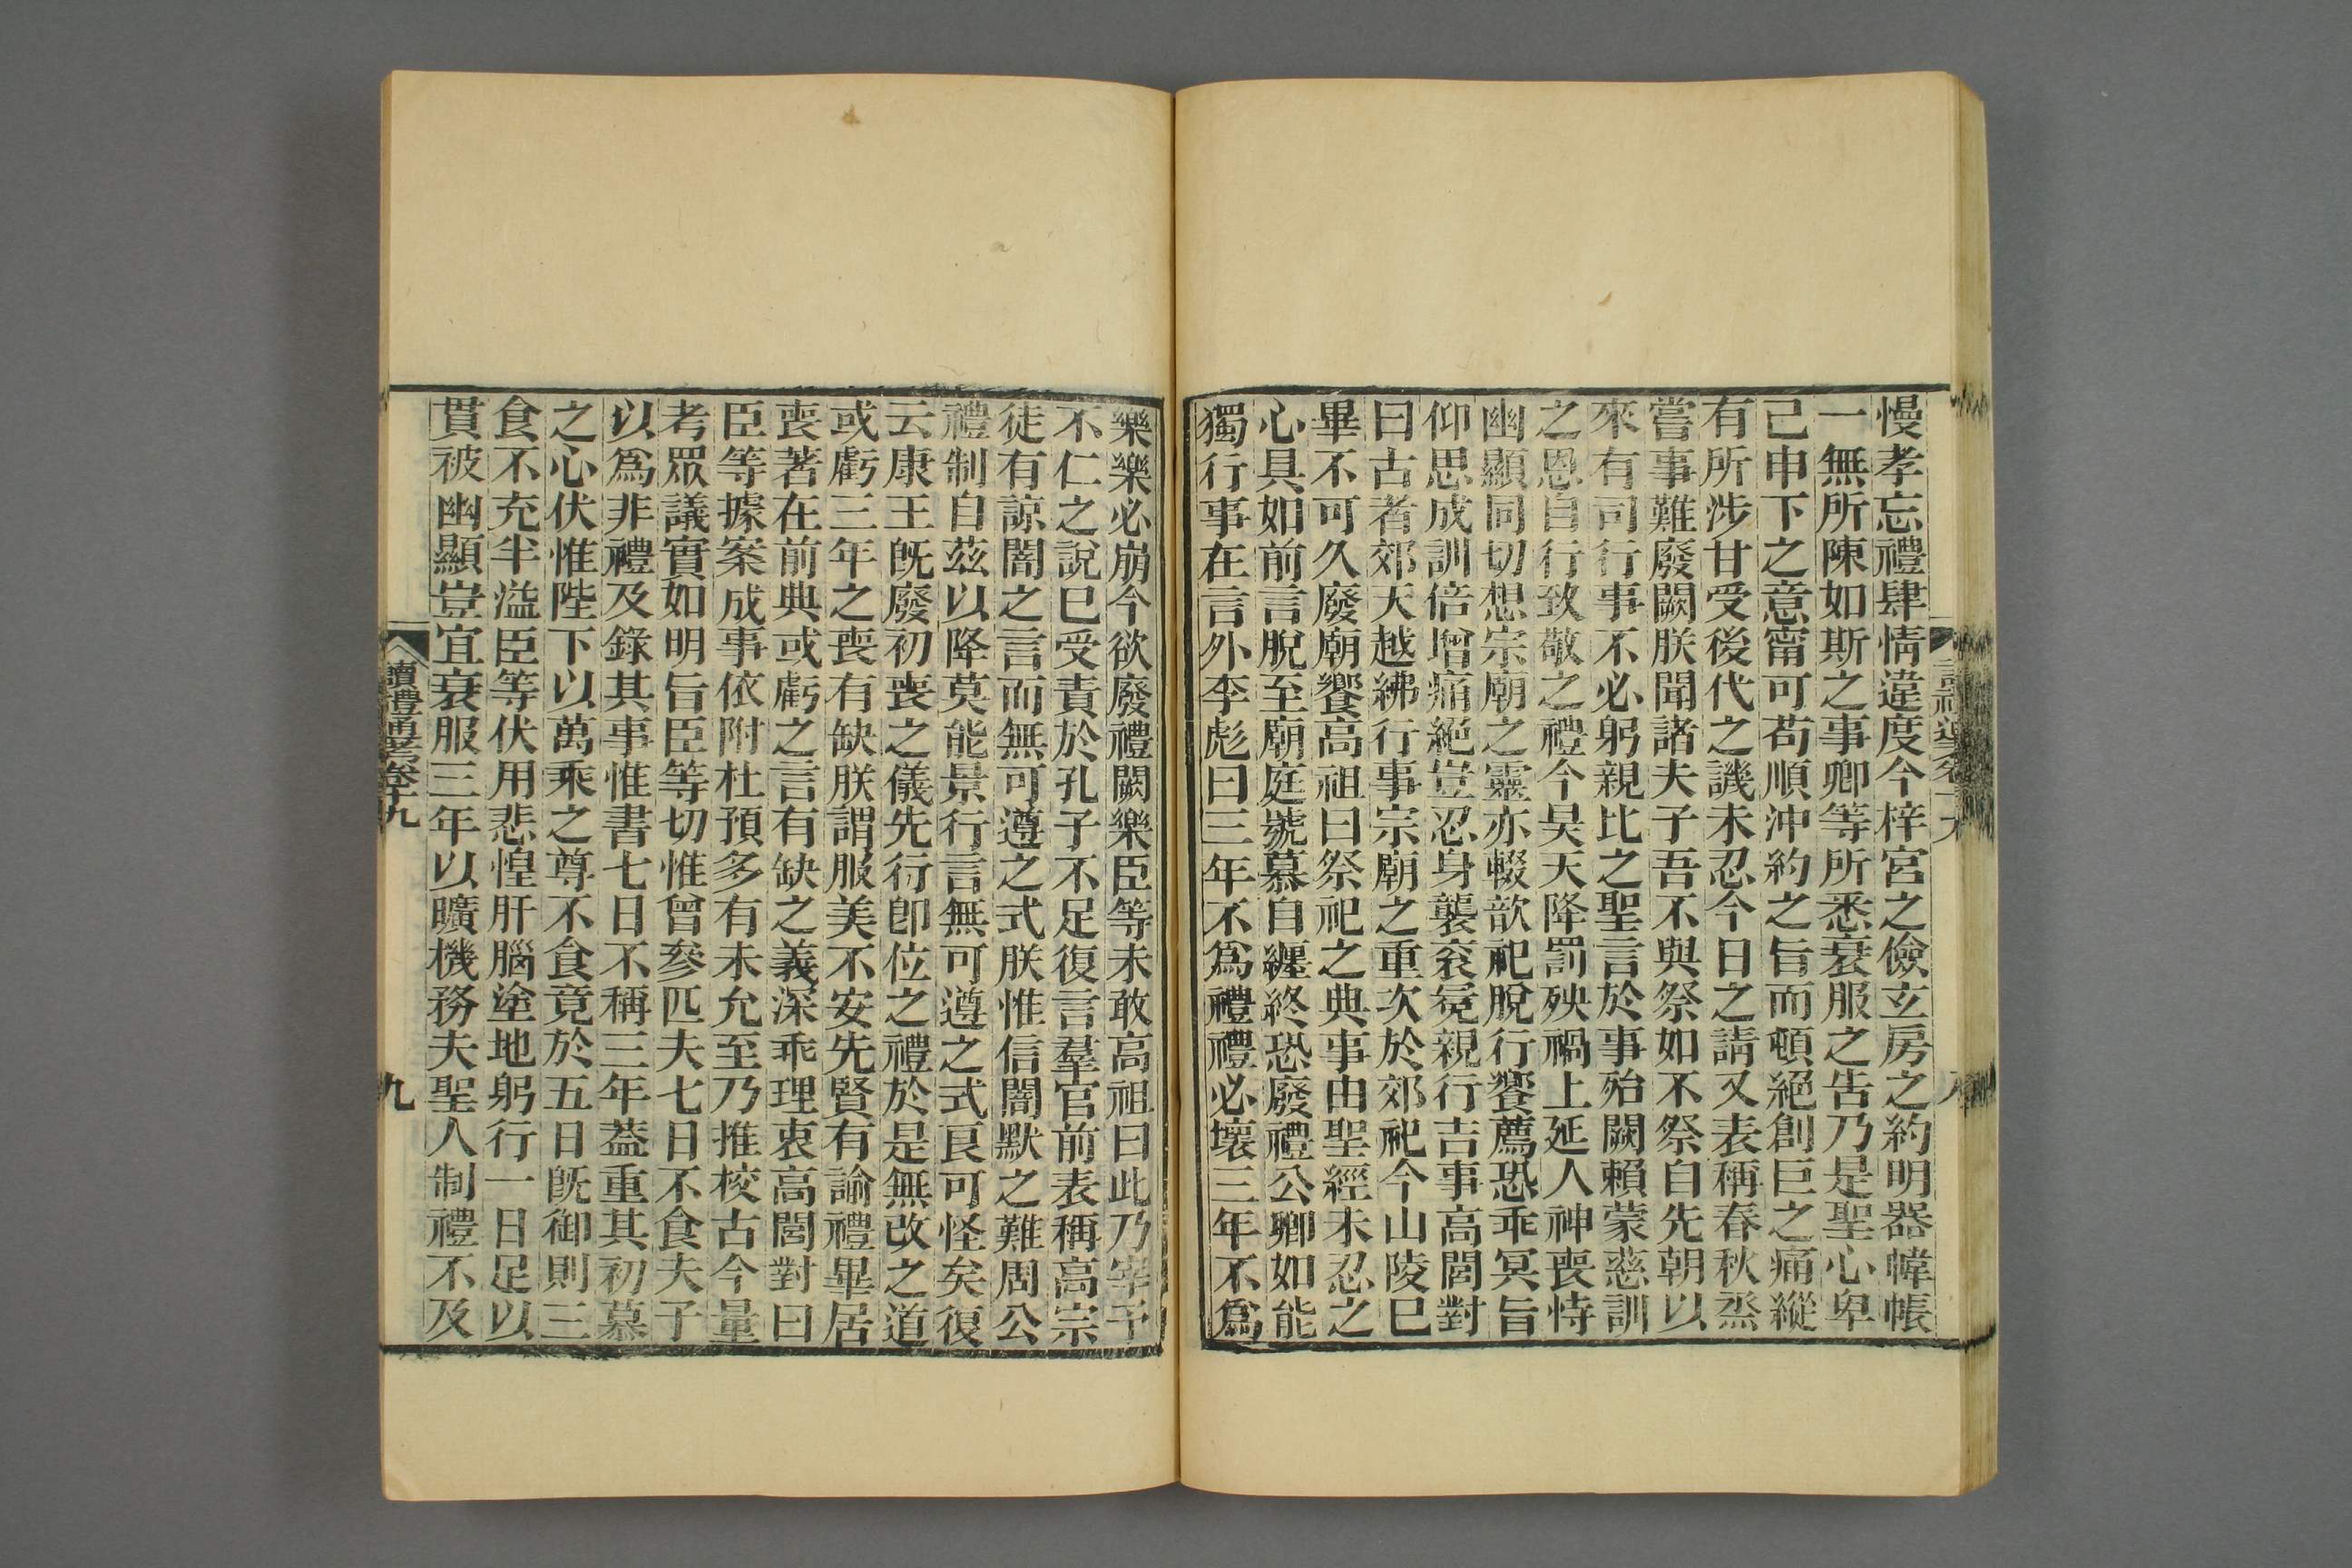 慢孝忘禮肆情違度今梓宮之儉玄房之約明器幃帳
一無所陳如斯之事卿等所悉衰服之吿乃是聖心卑
己申下之意甯可苟順沖約之旨而頓絕創巨之痛縱
有所涉甘受後代之譏未忍今日之請又表稱春秋烝
嘗事難廢闕朕聞諸夫子吾不與祭如不祭自先朝以
來有司行事不必躬親比之聖言於事殆闕賴蒙慈訓
之恩自行致敬之禮今昊天降罰殃禍上延人神喪恃
幽顯同切想宗廟之靈亦輟歆祀脫行饗薦恐乖冥旨
仰思成訓倍增痛絕豈忍身襲衮冕親行吉事高閭對
曰古者郊天越紼行事宗廟之重次於郊祀今山陵已
畢不可久廢廟饗高祖曰祭祀之典事由聖經未忍之
心具如前言脫至廟庭號慕自纏終恐廢禮公卿如能
獨行事在言外李彪曰三年不爲禮禮必壞三年不爲
樂樂必崩今欲廢禮闕樂臣等未敢高祖曰此乃宰予
不仁之說已受責於孔子不足復言羣官前表稱高宗
徒有諒闇之言而無可遵之式朕惟信闇默之難周公
禮制自茲以降莫能景行言無可遵之式良可怪矣復
云康王旣廢初喪之儀先行卽位之禮於是無改之道
或虧三年之喪有缺朕謂服美不安先賢有諭禮畢居
喪著在前典或虧之言有缺之義深乖理衷高閭對曰
臣等據案成事依附杜預多有未允至乃推校古今量
考眾議實如明旨臣等切惟曾參匹夫七日不食夫子
以爲非禮及錄其事惟書七日不稱三年蓋重其初慕
之心伏惟陛下以萬乘之尊不食竟於五日旣御則三
食不充半溢臣等伏用悲惶肝腦塗地躬行一日足以
貫被幽顯豈宜衰服三年以曠機務夫聖人制禮不及
讀禮通考卷十九
九